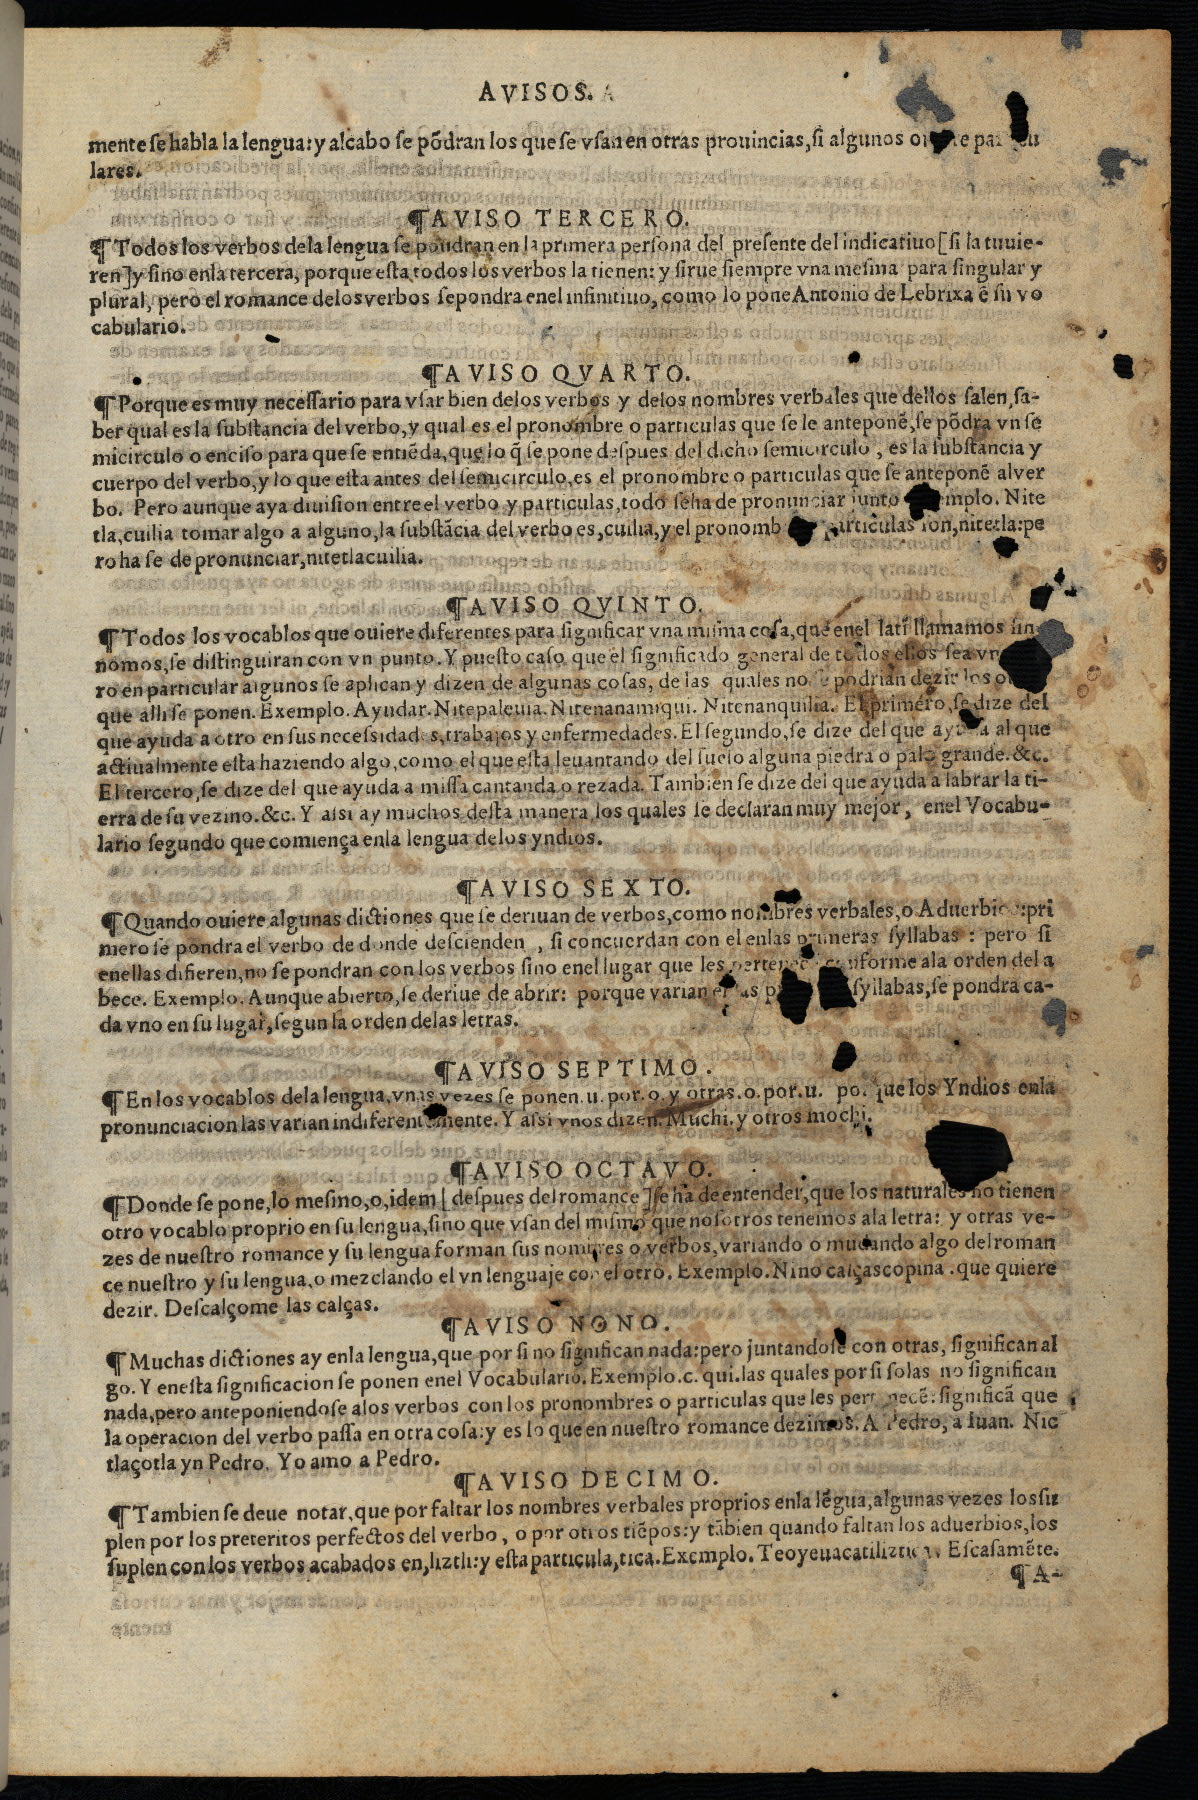 AVISOS.
mente se habla la lengua: y alcabo se põdran los que se vsan en otras prouincias, si algunos
lares.
¶AVISO TERCERO.
¶ Todos los verbos dela lengua se pondran en la primera persona del presente del indicatiuo [ si la tuuie-
ren ] y sino enla tercera, porque esta todos los verbos la tienen: y sirue siempre vna mesma para singular y
plural, pero el romance delos verbos se pondra enel infinitiuo, como lo pone Antonio de Lebrixa ẽ su vo
cabulario.
¶AVISO QVARTO.
¶ Porque es muy necessario para vsar bien delos verbos y delos nombres verbales que dellos salen, sa-
ber qual es la substancia del verbo, y qual es el pronombre o particulas que se le anteponẽ, se põdra vn se
micirculo o enciso para que se entiẽda, que lo q̃ se pone despues del dicho semicirculo, es la substancia y
cuerpo del verbo, y lo que esta antes del semicirculo, es el pronombre o particulas que se anteponẽ al ver
bo. Pero aunque aya diuision entre el verbo y particulas, todo se ha de pronunciar junto emplo. Nite
tla, cuilia tomar algo a alguno, la substãcia del verbo es, cuilia, y el pronomb particulas son, nitetla: pe
ro ha se de pronunciar, nitetlacuilia.
¶AVISO QVINTO.
¶ Todos los vocablos que ouiere diferentes para significar vna misma cosa, que enel latĩ llamamos sin
nomos, se distinguiran con vn punto. Y puesto caso que el significado general de todos ellos sea vn
ro en particular algunos se aplican y dizen de algunas cosas, de las quales no se podrian dezir los
que alli se ponen. Exemplo. Ayudar. Nitepaleuia. Nitenanamiqui. Nitenanquilia. El primero, se dize del
que ayuda a otro en sus necessidades, trabajos y enfermedades. El segundo, se dize del que ayuda al que
actiualmente esta haziendo algo, como el que esta leuantando del suelo alguna piedra o palo grande. &c.
El tercero, se dize del que ayuda a missa cantanda o rezada. Tambien se dize del que ayuda a labrar la ti-
erra de su vezino. &c. Y assi ay muchos desta manera, los quales se declaran muy mejor, enel Vocabu-
lario segundo que comiença enla lengua delos yndios.
¶AVISO SEXTO.
¶ Quando ouiere algunas dictiones que se deriuan de verbos, como nombres verbales, o Aduerbios: pri
mero se pondra el verbo de donde descienden, si concuerdan con el enlas primeras syllabas: pero si
enellas difieren, no se pondran con los verbos sino enel lugar que les conforme ala orden del a
bece. Exemplo. Aunque abierto, se deriue de abrir: porque varian syllabas, se pondra ca-
da vno en su lugar, segun la orden delas letras.
¶AVISO SEPTIMO.
¶ En los vocablos dela lengua, vnas vezes se ponen. u. por. o. y otras. o. por. u. porque los Yndios enla
pronunciacion las varian indiferentemente. Y assi vnos dizen. Muchi. y otros mochi.
¶AVISO OCTAVO.
¶ Donde se pone, lo mesmo, o, idem [ despues del romance ] se ha de entender, que los naturales no tienen
otro vocablo proprio en su lengua, sino que vsan del mismo que nosotros tenemos ala letra: y otras ve-
zes de nuestro romance y su lengua forman sus nombres o verbos, variando o mudando algo del roman
ce nuestro y su lengua, o mezclando el vn lenguaje con el otro. Exemplo. Nino calçascopina. que quiere
dezir. Descalçome las calças.
¶AVISO NONO.
¶ Muchas dictiones ay enla lengua, que por si no significan nada: pero juntandose con otras, significan al
go. Y enesta significacion se ponen enel Vocabulario. Exemplo. c. qui. las quales por si solas no significan
nada, pero anteponiendose alos verbos con los pronombres o particulas que les pertenecẽ: significã que
la operacion del verbo passa en otra cosa: y es lo que en nuestro romance dezimos. A Pedro, a Iuan. Nic
tlaçotla yn Pedro. Yo amo a Pedro.
¶AVISO DECIMO.
¶ Tambien se deue notar, que por faltar los nombres verbales proprios enla lẽgua, algunas vezes los su
plen por los preteritos perfectos del verbo, o por otros tiẽpos: y tãbien quando faltan los aduerbios, los
suplen con los verbos acabados en, liztli: y esta particula, tica. Exemplo. Teoyeuacatiliztica. Escasamẽte.
¶ A-